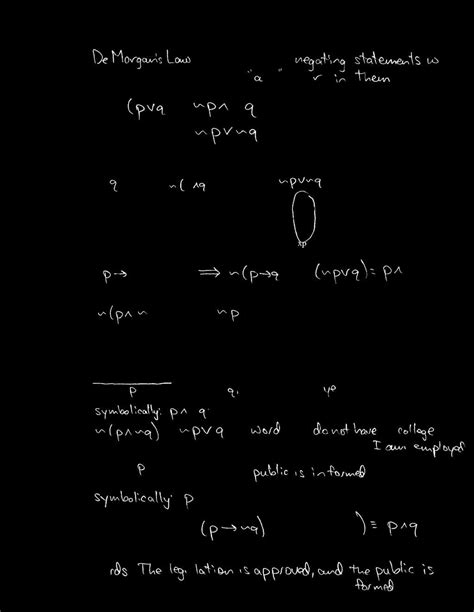 De Morgan's Law negating statements w
"a " r in them
(p∨q ~p∧ q
~p∨~q
q ~( ∧q ~p∨~q
p→ ⟹ ~(p→q (~p∨q)≡ p∧
~(p∧ ~ ~p
p q,
symbolically: p∧ q
~(p∧~q) ~p∨q word do not have college
I am employed
p public is informed
symbolically: p
(p→~q) )≡ p∧q
rds The leg. lation is approved, and the public is
formed